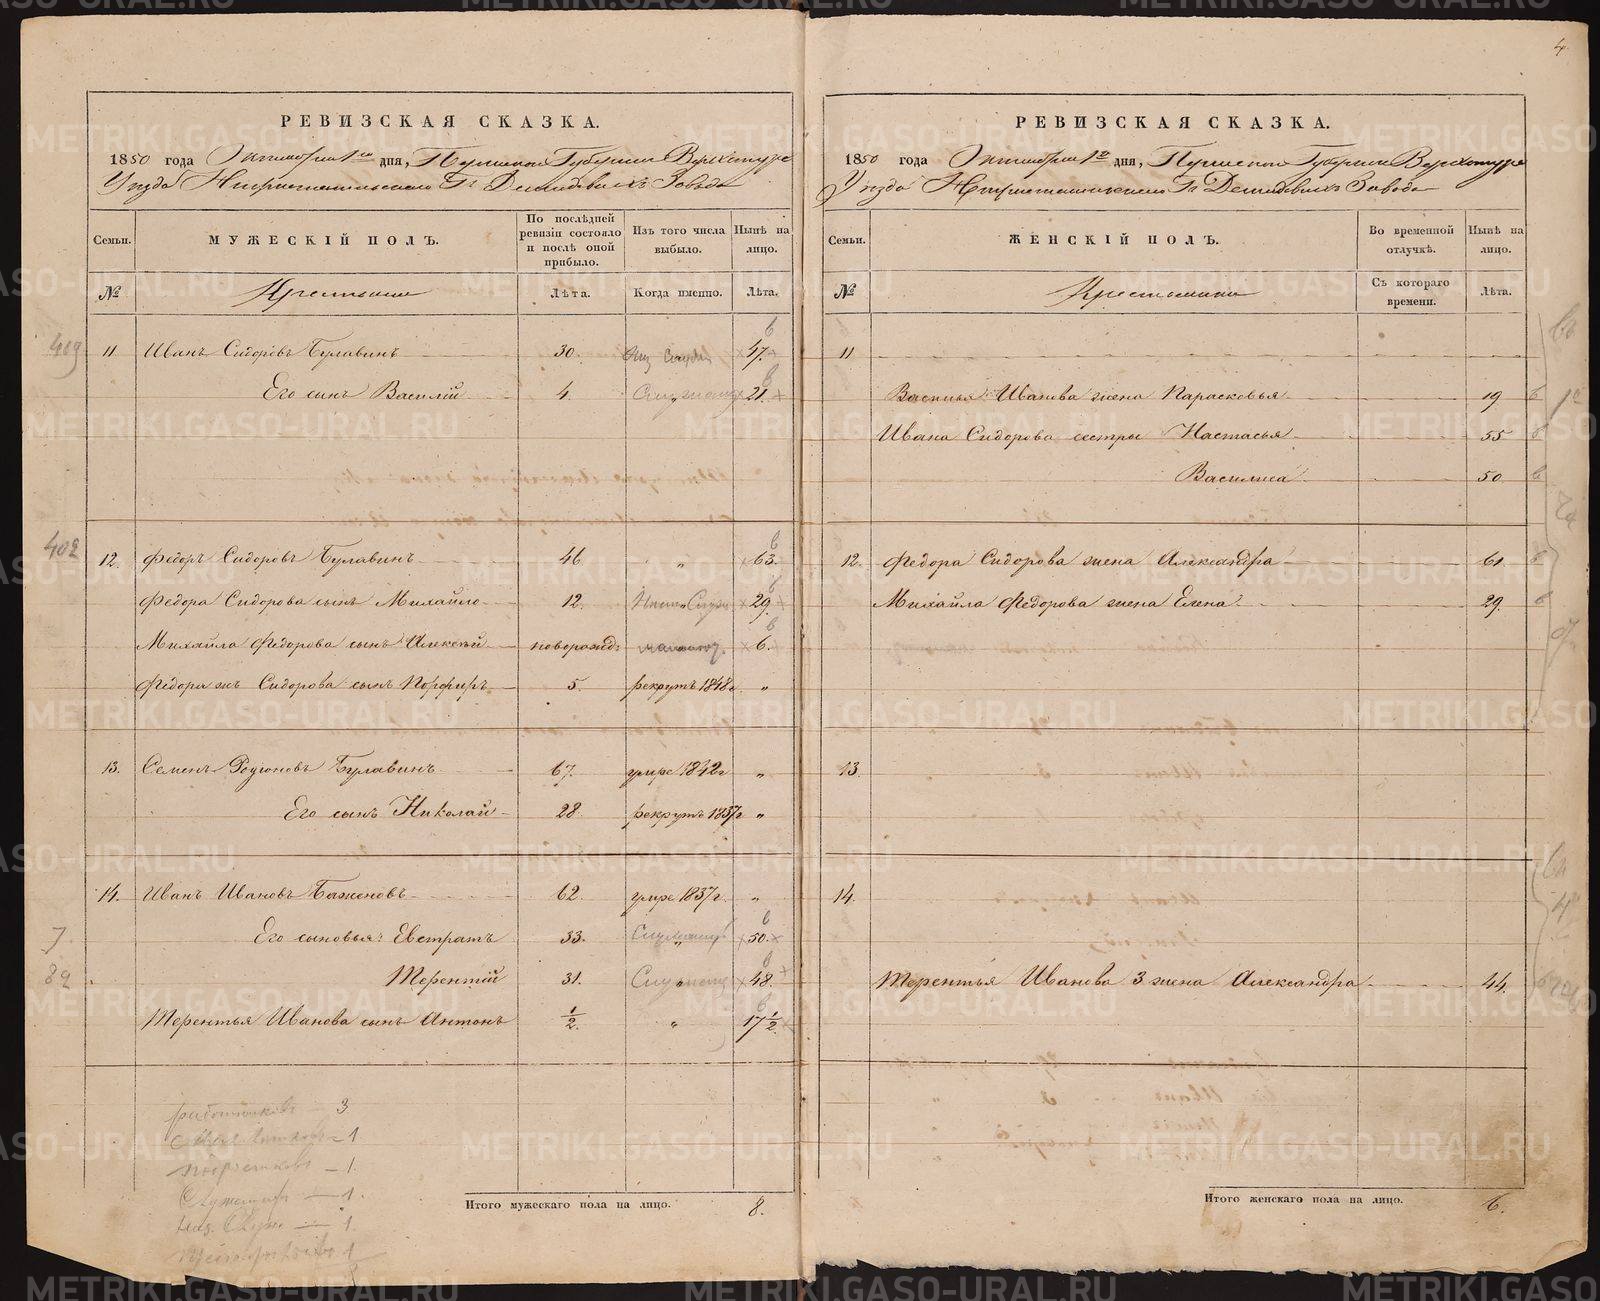 4.
РЕВИЗСКАЯ СКАЗКА.
1850 года Октября 1го дня, Пермской Губернiи Верхотурс
Уѣзда Нижнетагильскаго Гг Демидовыхъ Завода
Семьи. МУЖЕСКIЙ ПОЛЪ. По послѣдней ревизiи состояло и послѣ оной прибыло. Изъ того числа выбыло. Нынѣ на лицо.
№ Крестьяне Лѣта. Когда именно. Лѣта.
409 11 Иванъ Сидоровъ Булавинъ 30. 47.
Его сынъ Василiй 4. 21.
402 12. Федоръ Сидоровъ Булавинъ 46 „ 63.
Федора Сидорова сынъ Михайло 12. 29.
Михайла Федорова сынъ Алексѣй новорожд: 6.
Федора жъ Сидорова сынъ Порфиръ 5. рекрутъ 1848г. „
13. Семенъ Родiоновъ Булавинъ 67. умре 1842г „
Его сынъ Николай 28. рекрутъ 1837г „
14. Иванъ Ивановъ Баженовъ 62. умре 1837г. „
Его сыновья: Евстратъ 33. 50.
Терентiй 31. 48.
Терентья Иванова сынъ Антонъ 1/2. „ 17 1/2.
работниковъ — 3
— 1.
Подростковъ — 1.
— 1.
— 1.
Итого мужескаго пола на лицо. 8.
РЕВИЗСКАЯ СКАЗКА.
1850 года Октября 1го дня, Пермской Губернiи Верхотурс
Уѣзда Нижнетагильскаго Гг Демидовыхъ Завода
Семьи. ЖЕНСКIЙ ПОЛЪ. Во временной отлучкѣ. Нынѣ на лицо.
№ Крестьянки Съ котораго времени. Лѣта.
11
Василья Иванова жена Парасковья 19
Ивана Сидорова сестры Настасья 55
Василиса 50
12. Федора Сидорова жена Александра 61
Михайла Федорова жена Елена 29.
13.
14.
Терентья Иванова 3 жена Александра 44.
Итого женскаго пола на лицо. 6.
METRIKI.GASO-URAL.RU